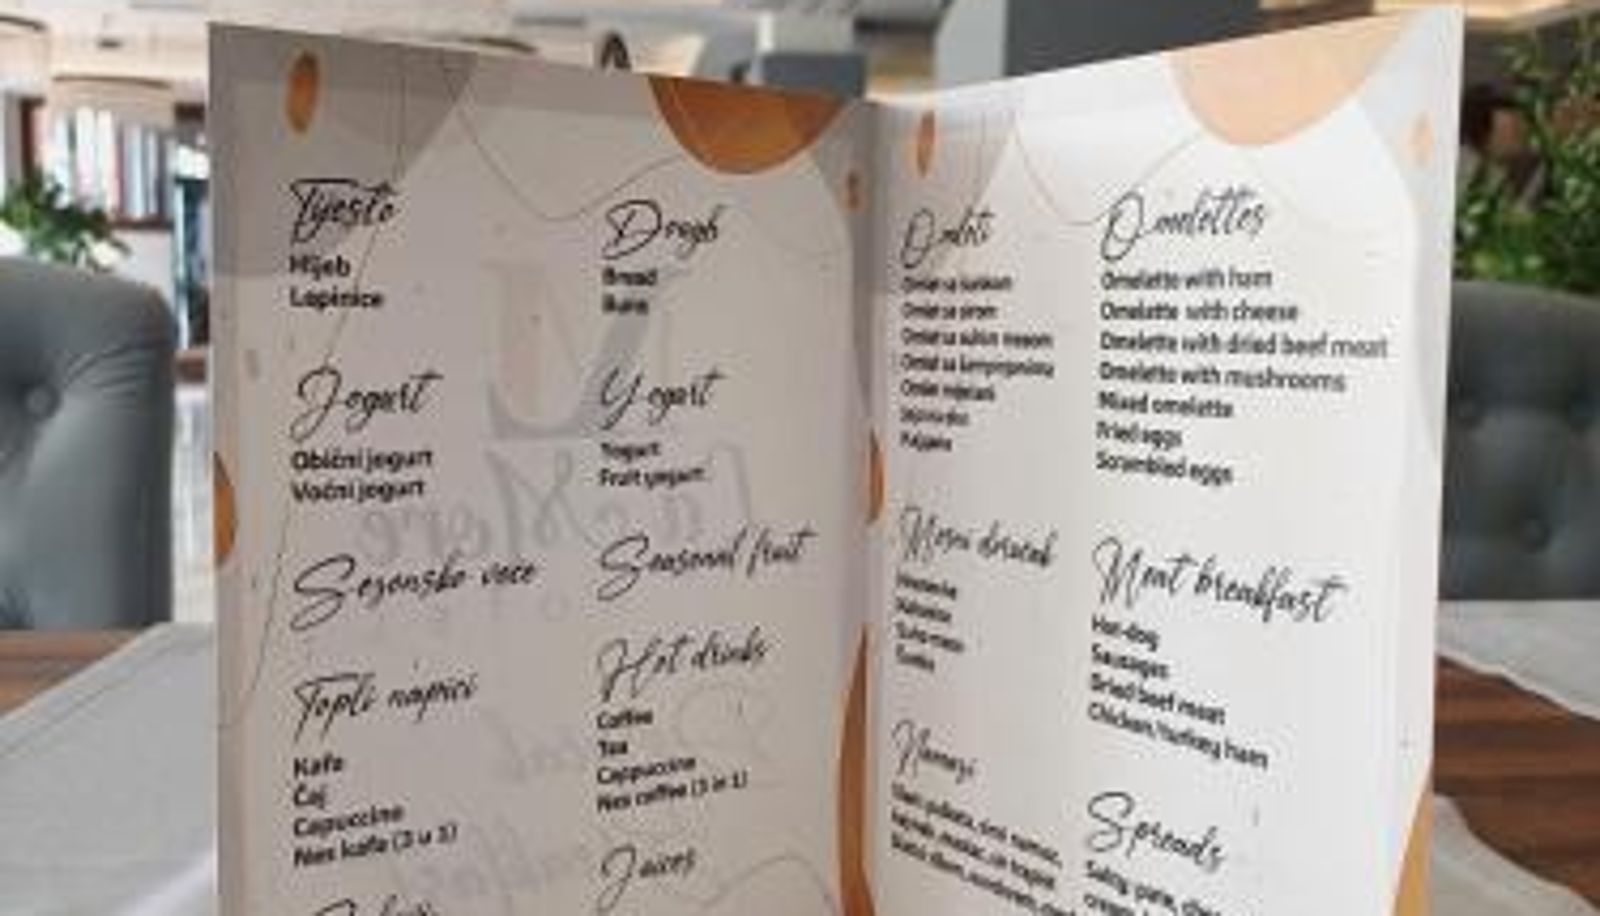 Tijesto
Hljeb
Lepinice
Jogurt
Obični jogurt
Voćni jogurt
Sezonsko voće
Topli napici
Kafa
Čaj
Cappuccino
Nes kafa (3 u 1)
Dough
Bread
Buns
Yogurt
Yogurt
Fruit yogurt
Seasonal fruit
Hot drinks
Coffee
Tea
Cappuccino
Nes coffee (3 in 1)
Juices
Omleti
Omlet sa šunkom
Omlet sa sirom
Omlet sa suhim mesom
Omlet sa šampinjonima
Omlet miješani
Jaja na oko
Kajgana
Mesni doručak
Hrenovke
Suho meso
Šunka
Namazi
Omelettes
Omelette with ham
Omelette with cheese
Omelette with dried beef meat
Omelette with mushrooms
Mixed omelette
Fried eggs
Scrambled eggs
Meat breakfast
Hot-dog
Sausages
Dried beef meat
Chicken/turkey ham
Spreads